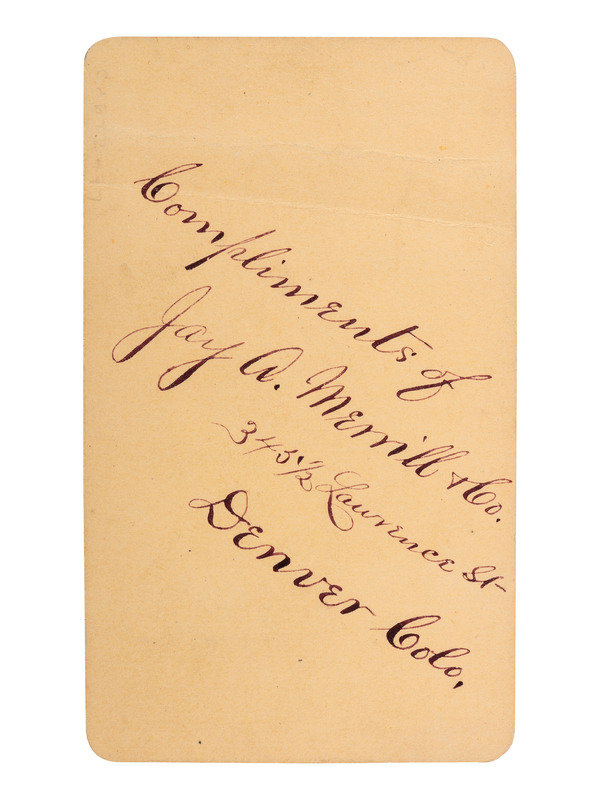 Compliments of
Jay A. Merrill & Co.
345 1/2 Lawrence St
Denver Colo,